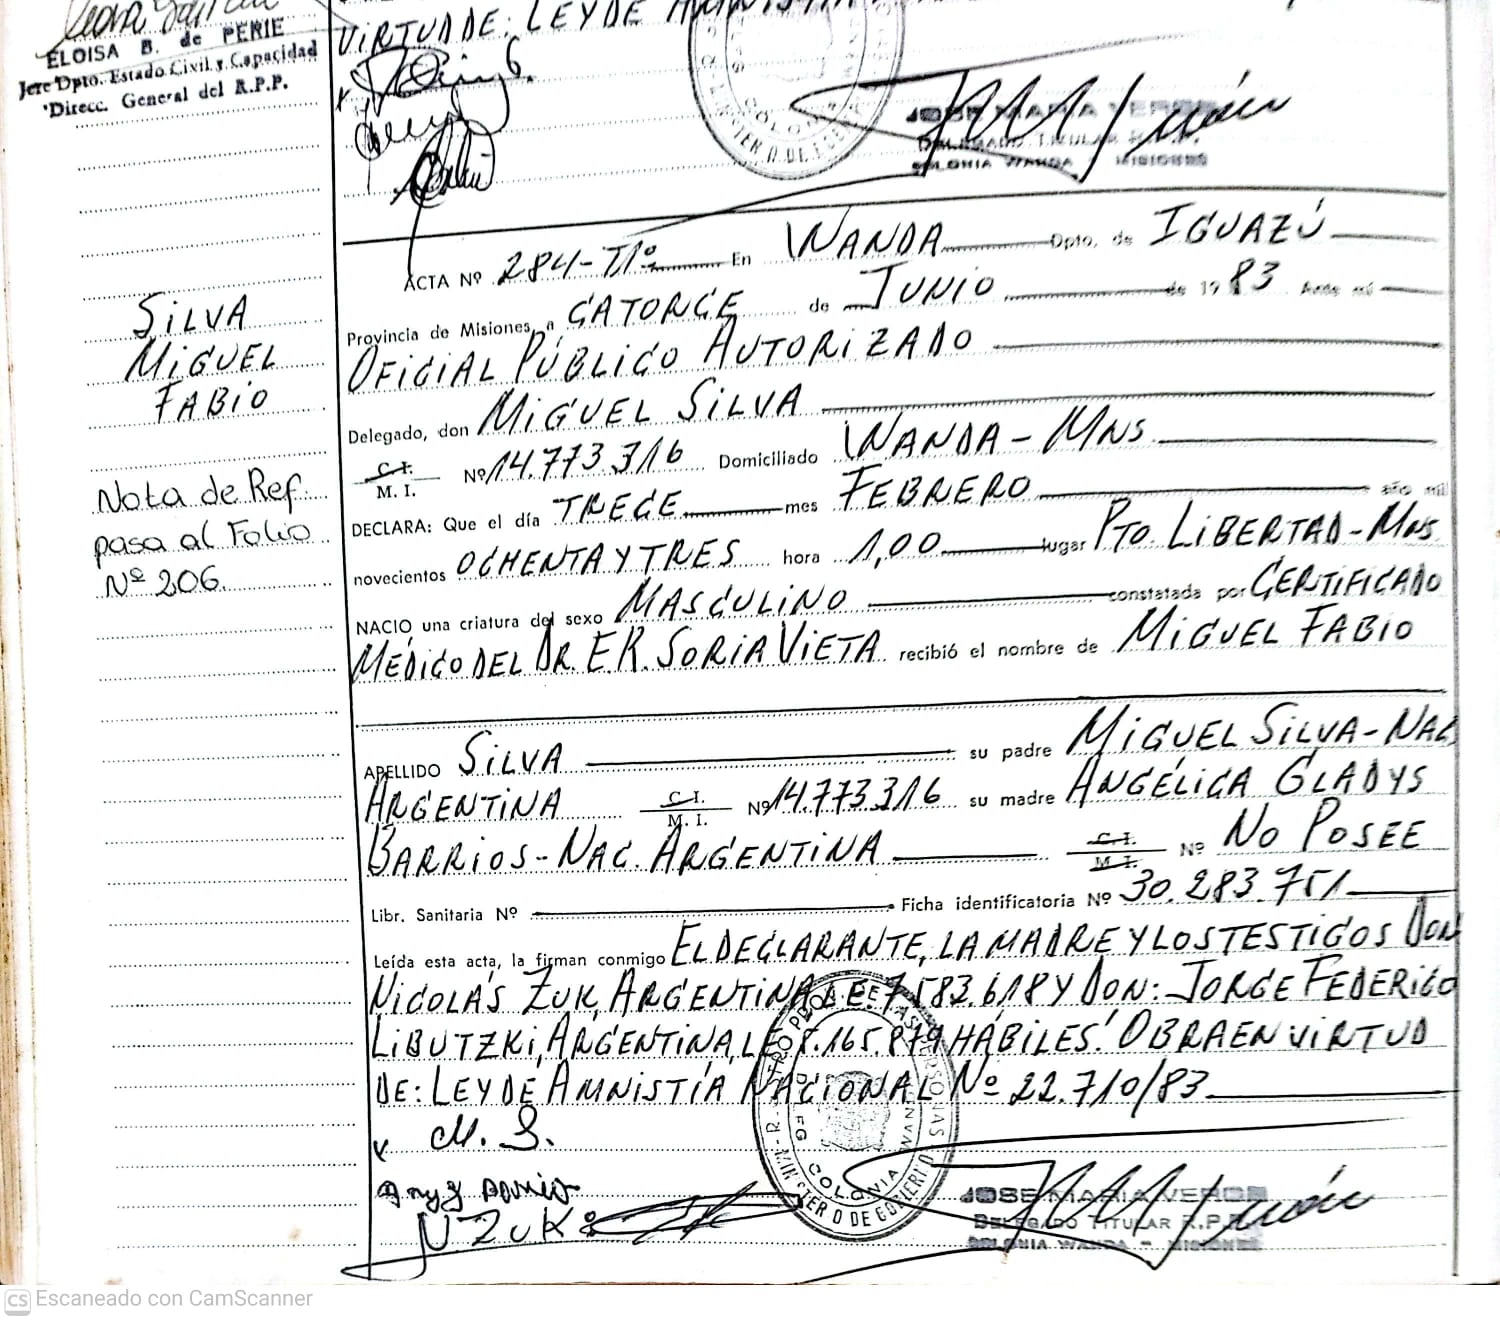 ELOISA B. de PERIE
Jefe Dpto. Estado Civil y Capacidad
Direcc. General del R.P.P.
VIRTUD DE: LEY DE
COLONIA
JOSE MARIA
DELEGADO TITULAR R.P.P.
COLONIA WANDA - MISIONES
ACTA Nº 284-Tº1º En WANDA Dpto. de IGUAZÚ
Provincia de Misiones, a CATORCE de JUNIO de 1983 Ante mí
OFICIAL PÚBLICO AUTORIZADO
Delegado, don MIGUEL SILVA
C.I. M.I. Nº 14.773.316 Domiciliado WANDA - MNS.
DECLARA: Que el día TRECE mes FEBRERO año mil
novecientos OCHENTA Y TRES hora 1,00 lugar PTO. LIBERTAD - MNS
NACIO una criatura del sexo MASCULINO constatada por CERTIFICADO
MÉDICO DEL DR. E.R. SORIA VIETA recibió el nombre de MIGUEL FABIO
APELLIDO SILVA su padre MIGUEL SILVA - NAC
ARGENTINA C.I. M.I. Nº 14.773.316 su madre ANGÉLICA GLADYS
BARRIOS - NAC. ARGENTINA C.I. M.I. Nº NO POSEE
Libr. Sanitaria Nº Ficha identificatoria Nº 30.283.751
Leída esta acta, la firman conmigo EL DECLARANTE, LA MADRE Y LOS TESTIGOS DON
NICOLÁS ZUK, ARGENTINA L.E. 7.583.618 Y DON: JORGE FEDERICO
LIBUTZKI, ARGENTINA, L.E. 8.165.879 HÁBILES. OBRA EN VIRTUD
DE: LEY DE AMNISTÍA NACIONAL Nº 22.710/83
M. S.
N. ZUK
COLONIA WANDA
MINISTERIO DE GOBIERNO
JOSE MARIA
DELEGADO TITULAR R.P.P.
COLONIA WANDA - MISIONES
SILVA
MIGUEL
FABIO
Nota de Ref.
pasa al Folio
Nº 206.
CS Escaneado con CamScanner